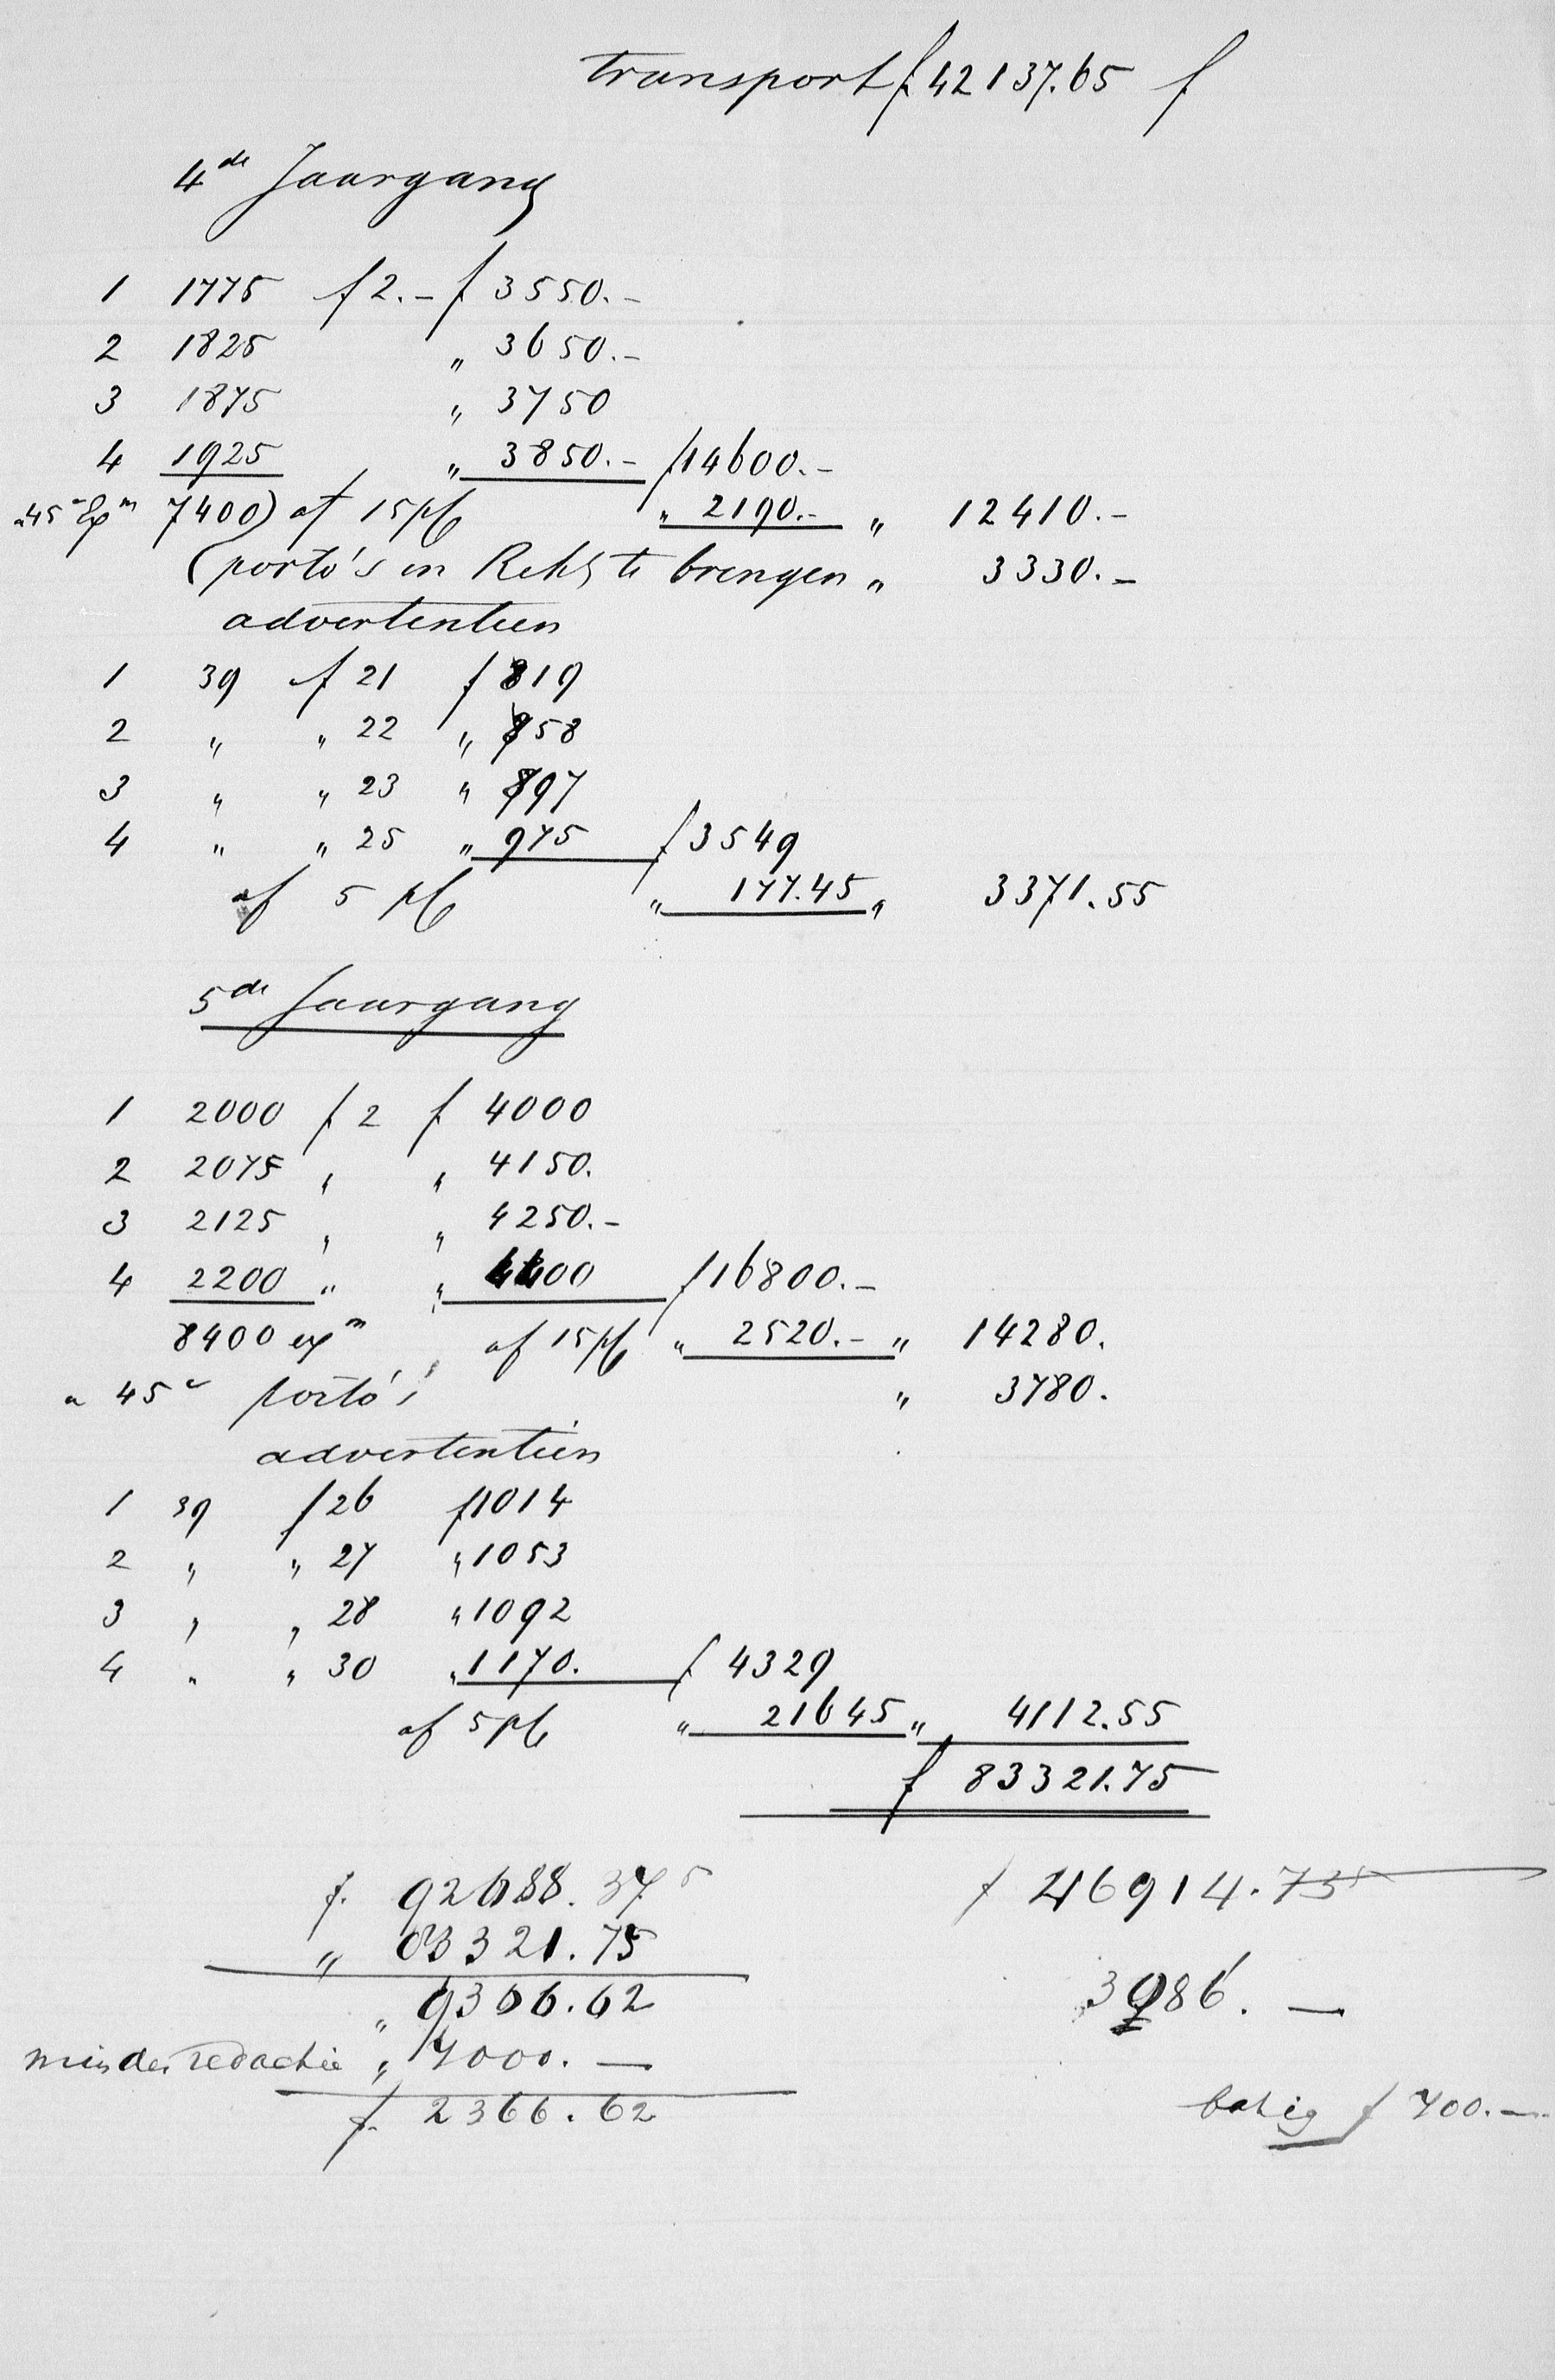 transport f 42137.65 f
4de Jaargang
1 1775 f 2.- f 3550.-
2 1825 " 3650.-
3 1875 " 3750
4 1925 " 3850.- f 14600.-
a 45c Exn 7400) af 15 pC " 2190.- " 12410.-
(porto's in Rek te brengen " 3330.-
advertentien
1 39 f 21 f 819
2 " " 22 " 858
3 " " 23 " 897
4 " " 25 " 975 f 3549
af 5 pC " 177.45 " 3371.55
5de Jaargang
1 2000 f 2 f 4000
2 2075 " " 4150.
3 2125 " " 4250.-
4 2200 " " 4400 f 16800.-
8400 exm af 15 pC " 2520.- " 14280.
a 45c porto's " 3780.
advertentien
1 39 f 26 f 1014
2 " " 27 " 1053
3 " " 28 " 1092
4 " " 30 " 1170. f 4329
af 5 pC " 21645 " 4112.55
f 83321.75
f. 92688.375 f 46914.735
" 83321.75
" 9366.62 3986. —
minder redactie " 7000. —
f. 2366.62 batig f 700.—